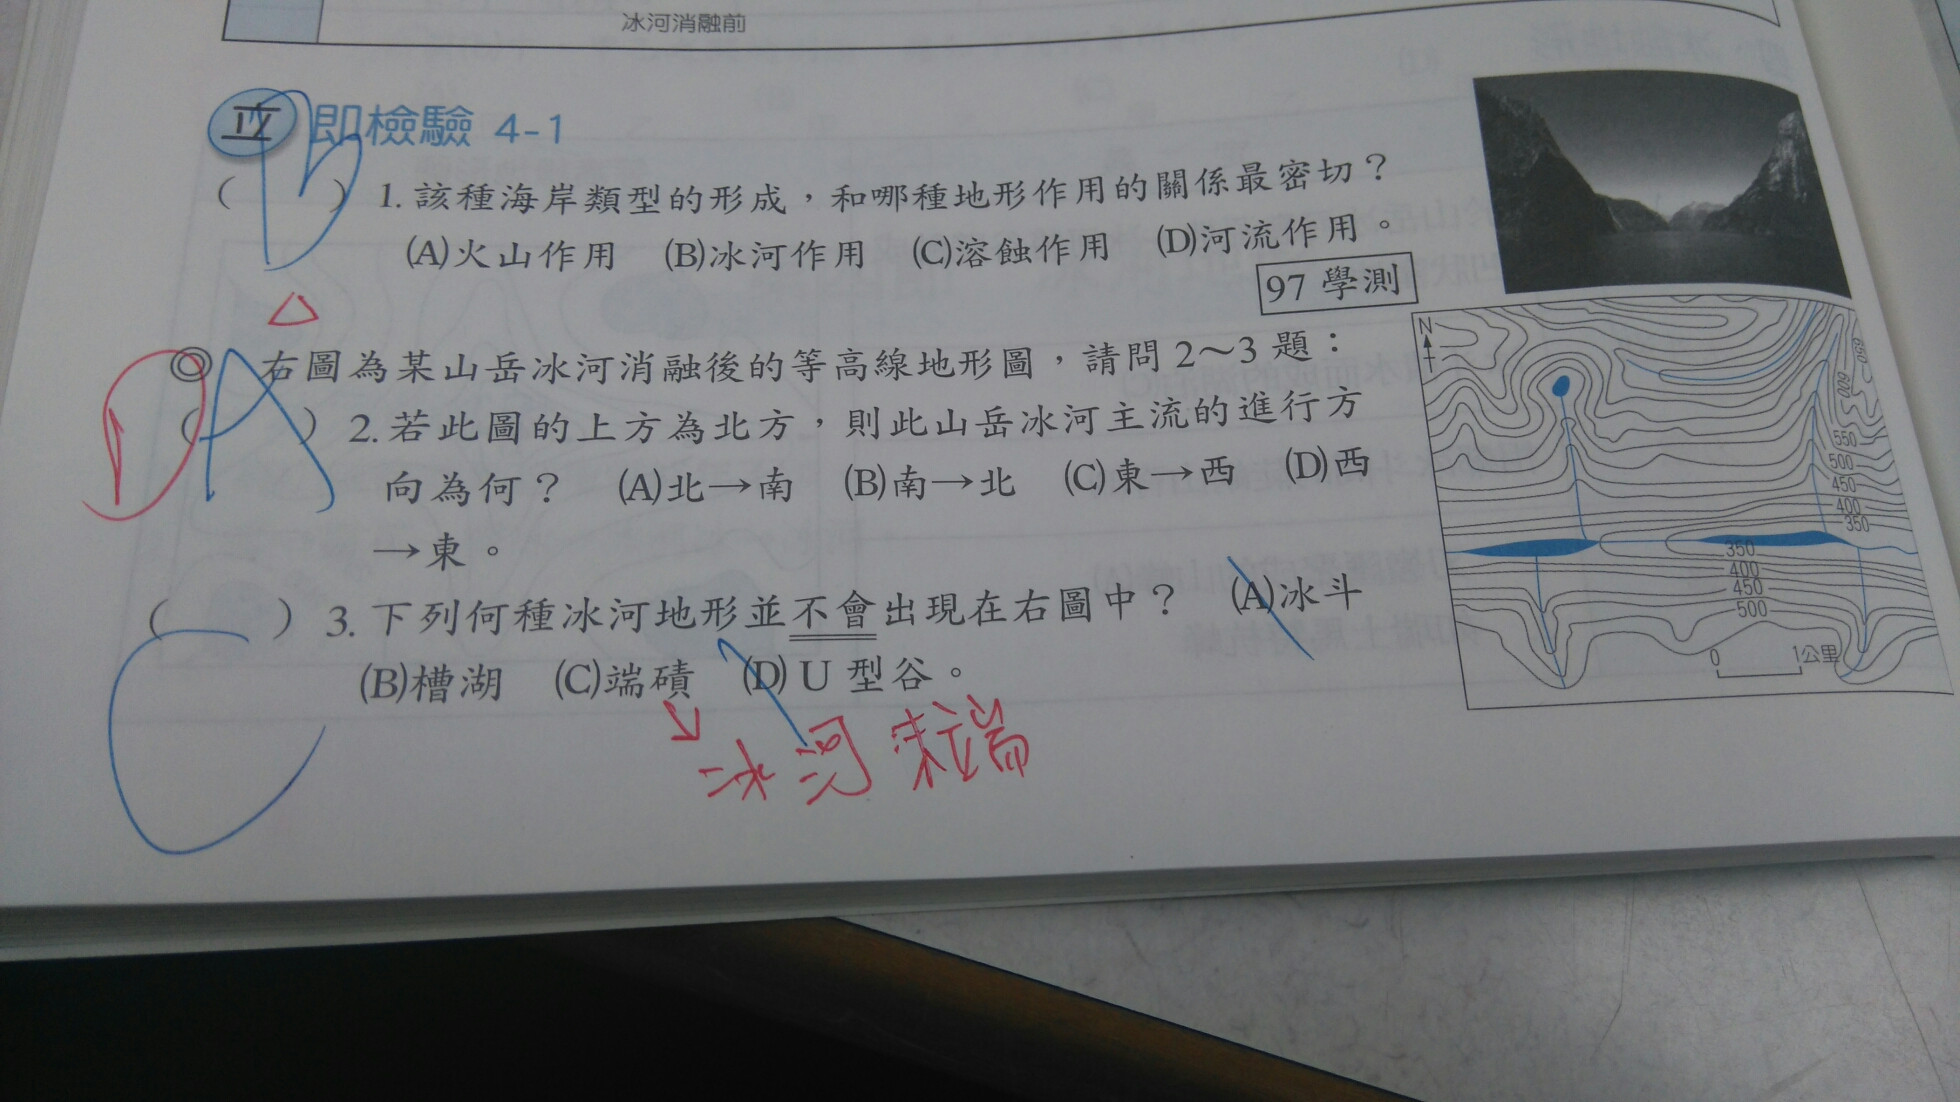 冰河消融前
立即檢驗 4-1
( b ) 1. 該種海岸類型的形成，和哪種地形作用的關係最密切？
(A)火山作用 (B)冰河作用 (C)溶蝕作用 (D)河流作用。
97 學測
△
◎ 右圖為某山岳冰河消融後的等高線地形圖，請問 2～3 題：
D ( A ) 2. 若此圖的上方為北方，則此山岳冰河主流的進行方
向為何？ (A)北→南 (B)南→北 (C)東→西 (D)西
→東。
( C ) 3. 下列何種冰河地形並不會出現在右圖中？ (A)冰斗
(B)槽湖 (C)端磧 (D) U 型谷。
冰河末端
N
650
600
550
500
450
400
350
350
400
450
500
0 1公里